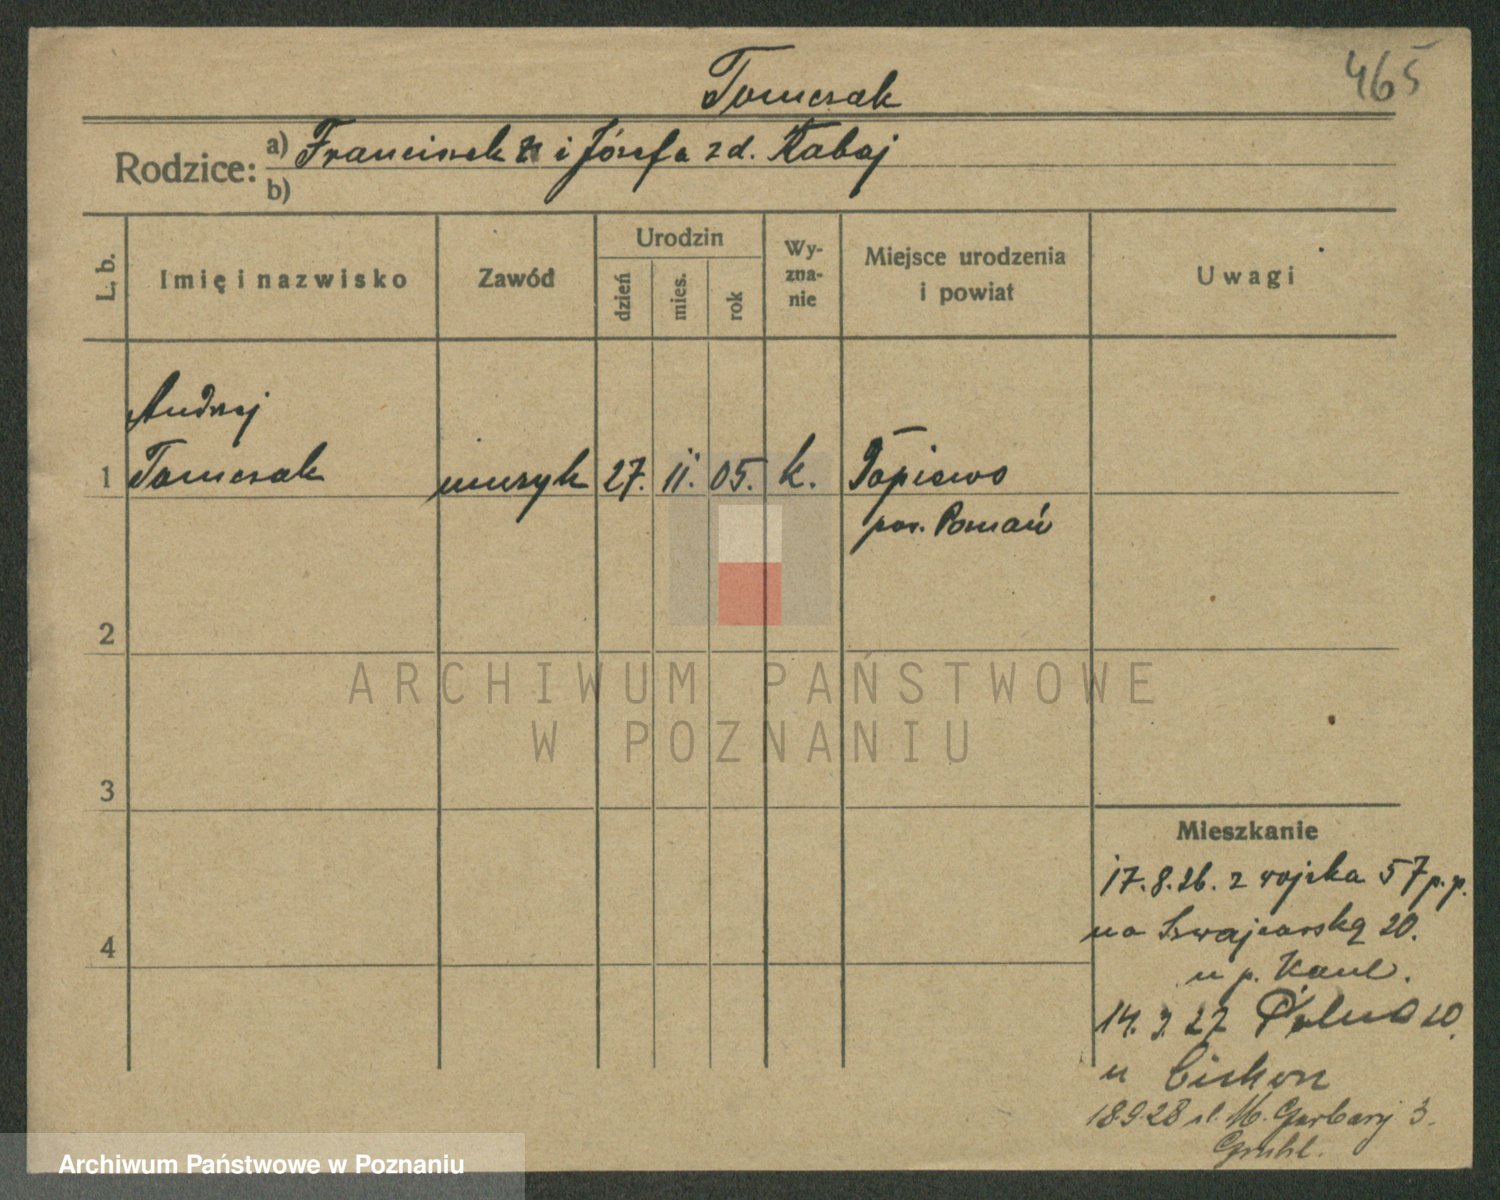 Tomczak
465
Rodzice:
a) Franciszek i Józefa z d. Kabaj
b)
L. b.
Imię i nazwisko
Zawód
Urodzin
dzień
mies.
rok
Wy-
zna-
nie
Miejsce urodzenia
i powiat
Uwagi
Andrzej
1 Tomczak muzyk 27. 11. 05. k. Dopiewo
pow. Poznań
2
3
4
ARCHIWUM PAŃSTWOWE
W POZNANIU
Mieszkanie
17.8.26. z wojska 57 p.p.
na Szwajcarską 20.
u p. Kaul.
14. 27 Polna 20.
u Cichon
18.9.28 M. Garbary 3.
Archiwum Państwowe w Poznaniu